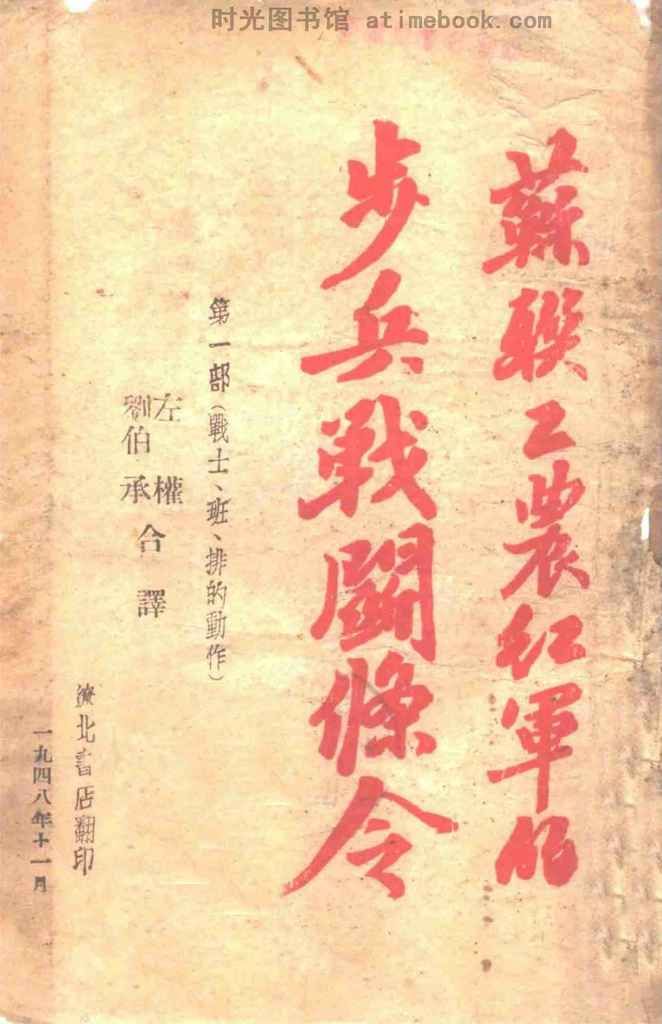 时光图书馆 atimebook.com
蘇聯工農红軍的
步兵戰鬭條令
第一部(戰士、班、排的動作)
左權
劉伯承
合譯
遼北書店翻印
一九四八年十一月